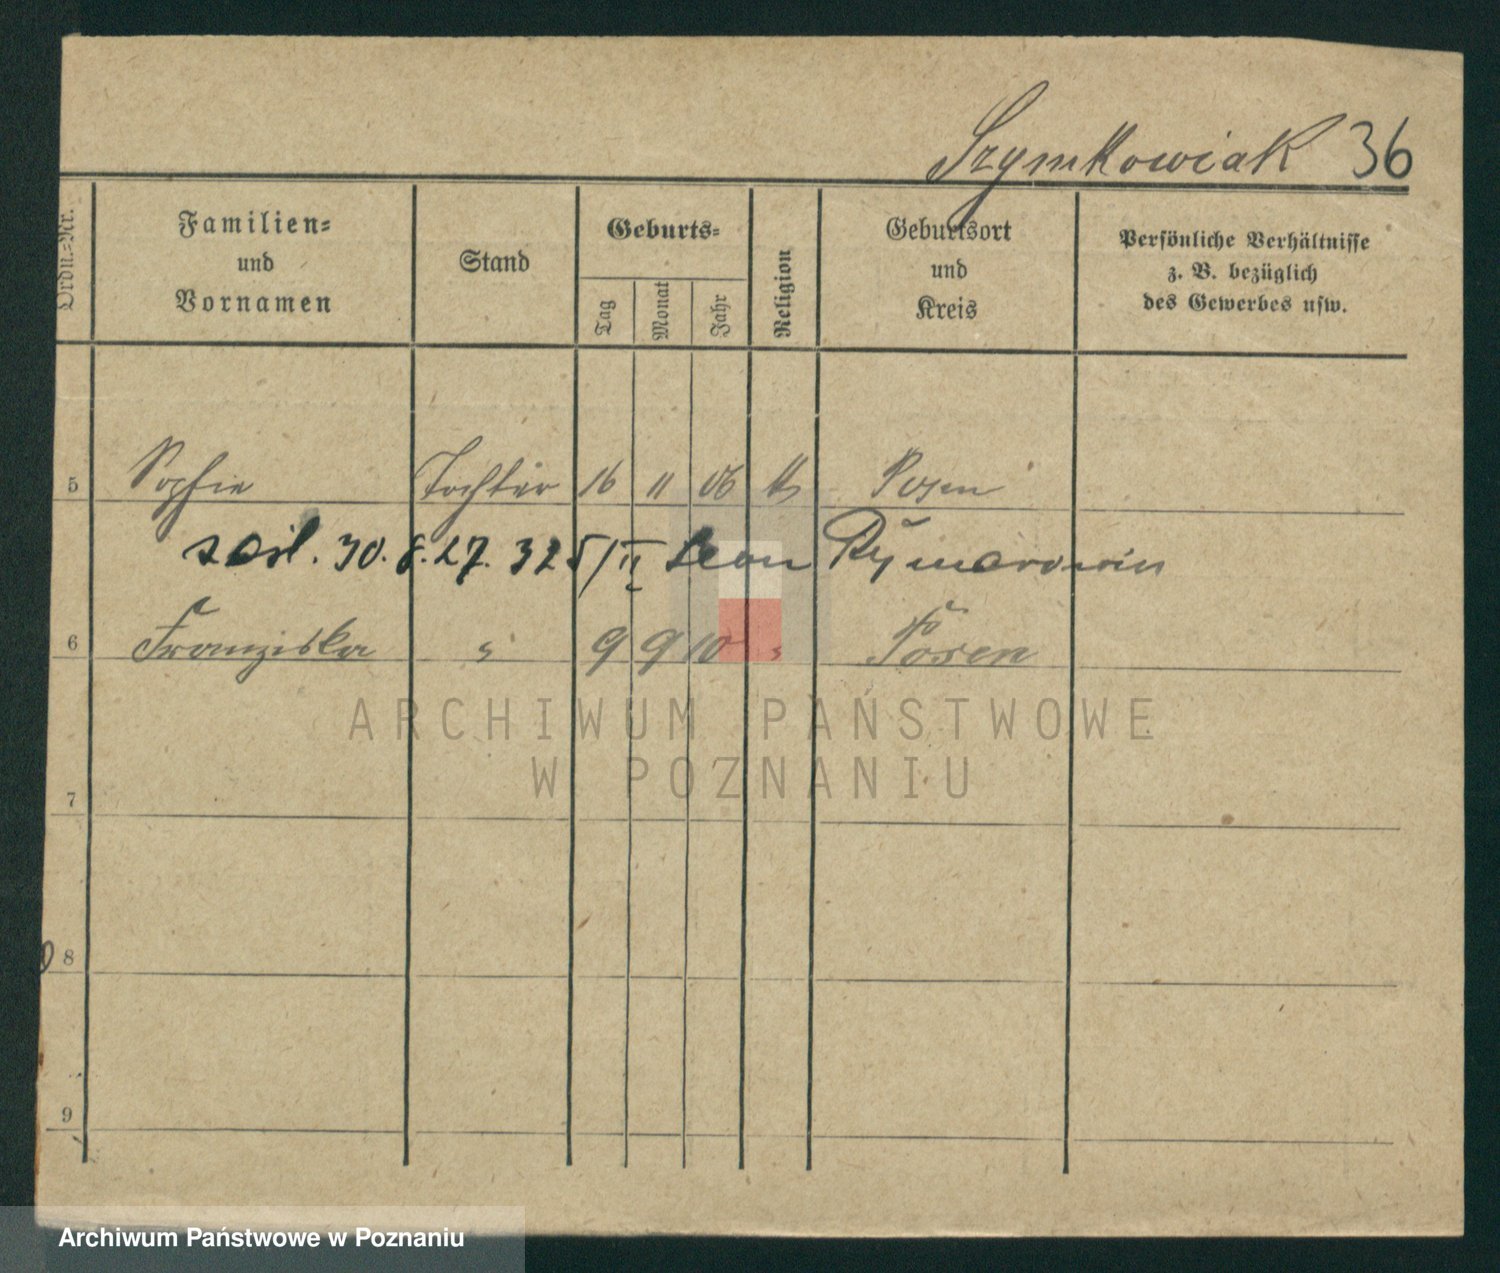 Szymkowiak 36
Ordn.-Nr.
Familien-
und
Vornamen
Stand
Geburts-
Tag
Monat
Jahr
Religion
Geburtsort
und
Kreis
Persönliche Verhältnisse
z. B. bezüglich
des Gewerbes usw.
5 Sophie Tochter 16 11 06 Posen
30. 8. 27. 325/II Leon
6 Franziska " 9 9 10 " Posen
ARCHIWUM PAŃSTWOWE
W POZNANIU
7
8
9
Archiwum Państwowe w Poznaniu